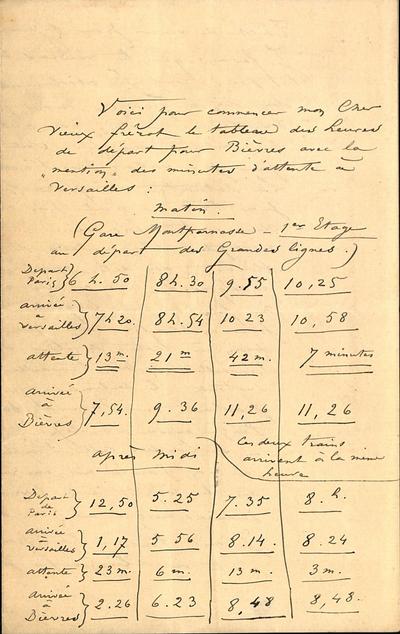 Voici pour commencer mon Cher
Vieux frérot le tableau des heures
de départ pour Bièvres avec la
"mention" des minutes d'attente à
Versailles :
matin.
(Gare Montparnasse - 1er Etage
au départ des Grandes lignes.)
Départ Paris } 6 h. 50 8h.30 9.55 10,25
arrivée à Versailles } 7h20. 8h.54 10 23 10,58
attente } 13 m. 21 m 42 m. 7 minutes
arrivée à Bièvres } 7,54. 9.36 11,26 11,26
après midi
Ces deux trains
arrivent à la même
heure
Départ de Paris } 12,50 5.25 7.35 8.h.
arrivée à Versailles } 1,17 5 56 8.14. 8.24
attente } 23 m. 6 m. 13 m. 3 m.
arrivée à Bièvres } 2.26 6.23 8,48 8,48.